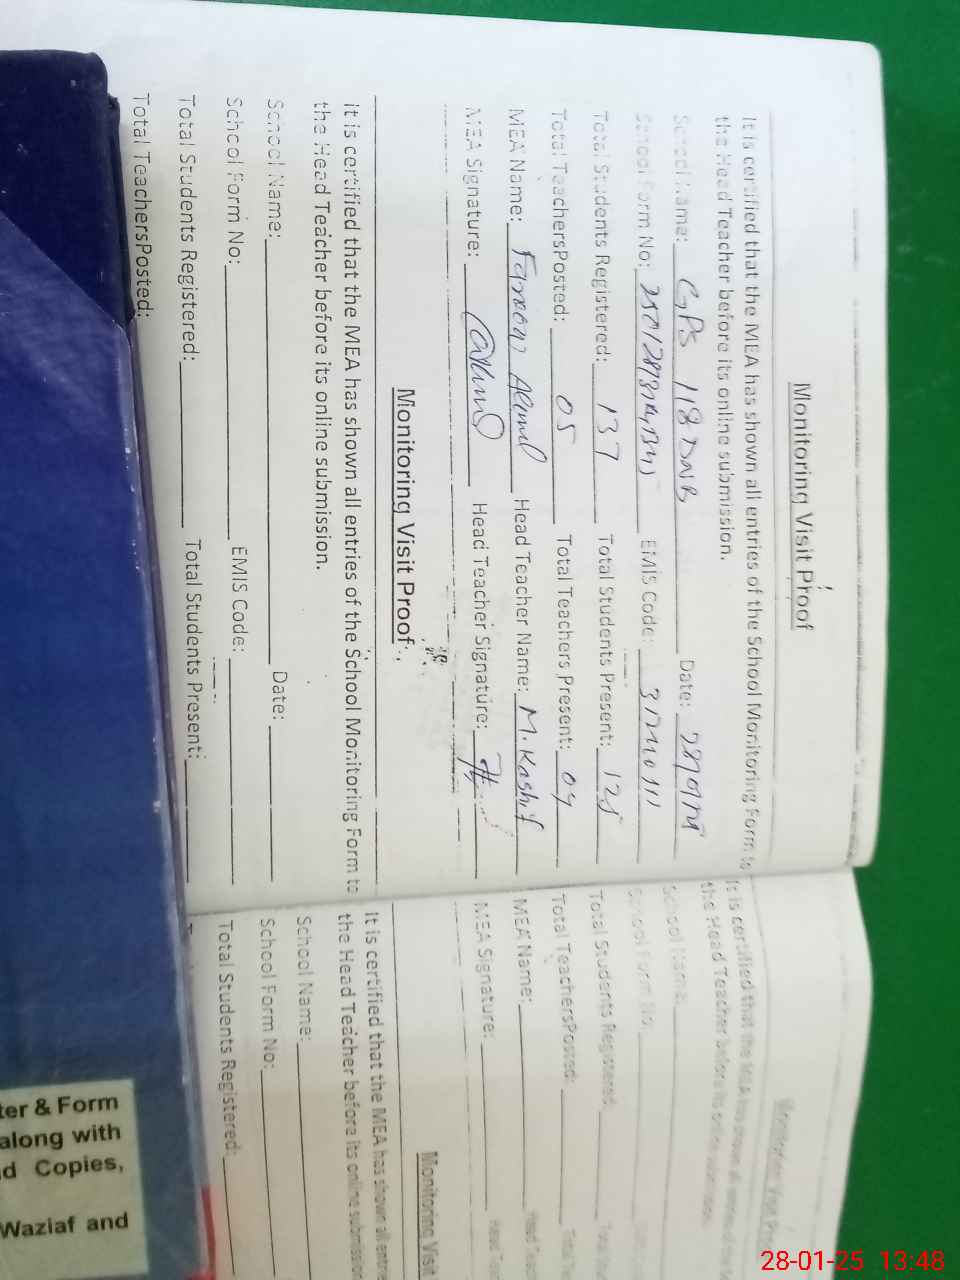 Monitoring Visit Proof
It is certified that the MEA has shown all entries of the School Monitoring Form to
the Head Teacher before its online submission.
School Name: GPS 118 DNB Date:
School Form No: EMIS Code:
Total Students Registered: 137 Total Students Present: 125
Total TeachersPosted: 05 Total Teachers Present: 04
MEA Name: Head Teacher Name: M. Kashif
MEA Signature: Head Teacher Signature:
Monitoring Visit Proof
It is certified that the MEA has shown all entries of the School Monitoring Form to
the Head Teacher before its online submission.
School Name: Date:
School Form No: EMIS Code:
Total Students Registered: Total Students Present:
Total TeachersPosted:
It is certified that the MEA has shown all
the Head Teacher before its online submission
School Name:
School Form No:
Total Students Registered:
Total TeachersPosted:
MEA Name:
MEA Signature:
Monitoring Visit
It is certified that the MEA has shown all entries
the Head Teacher before its online submission
School Name:
School Form No:
Total Students Registered:
ter & Form
along with
d Copies,
Waziaf and
28-01-25 13:48